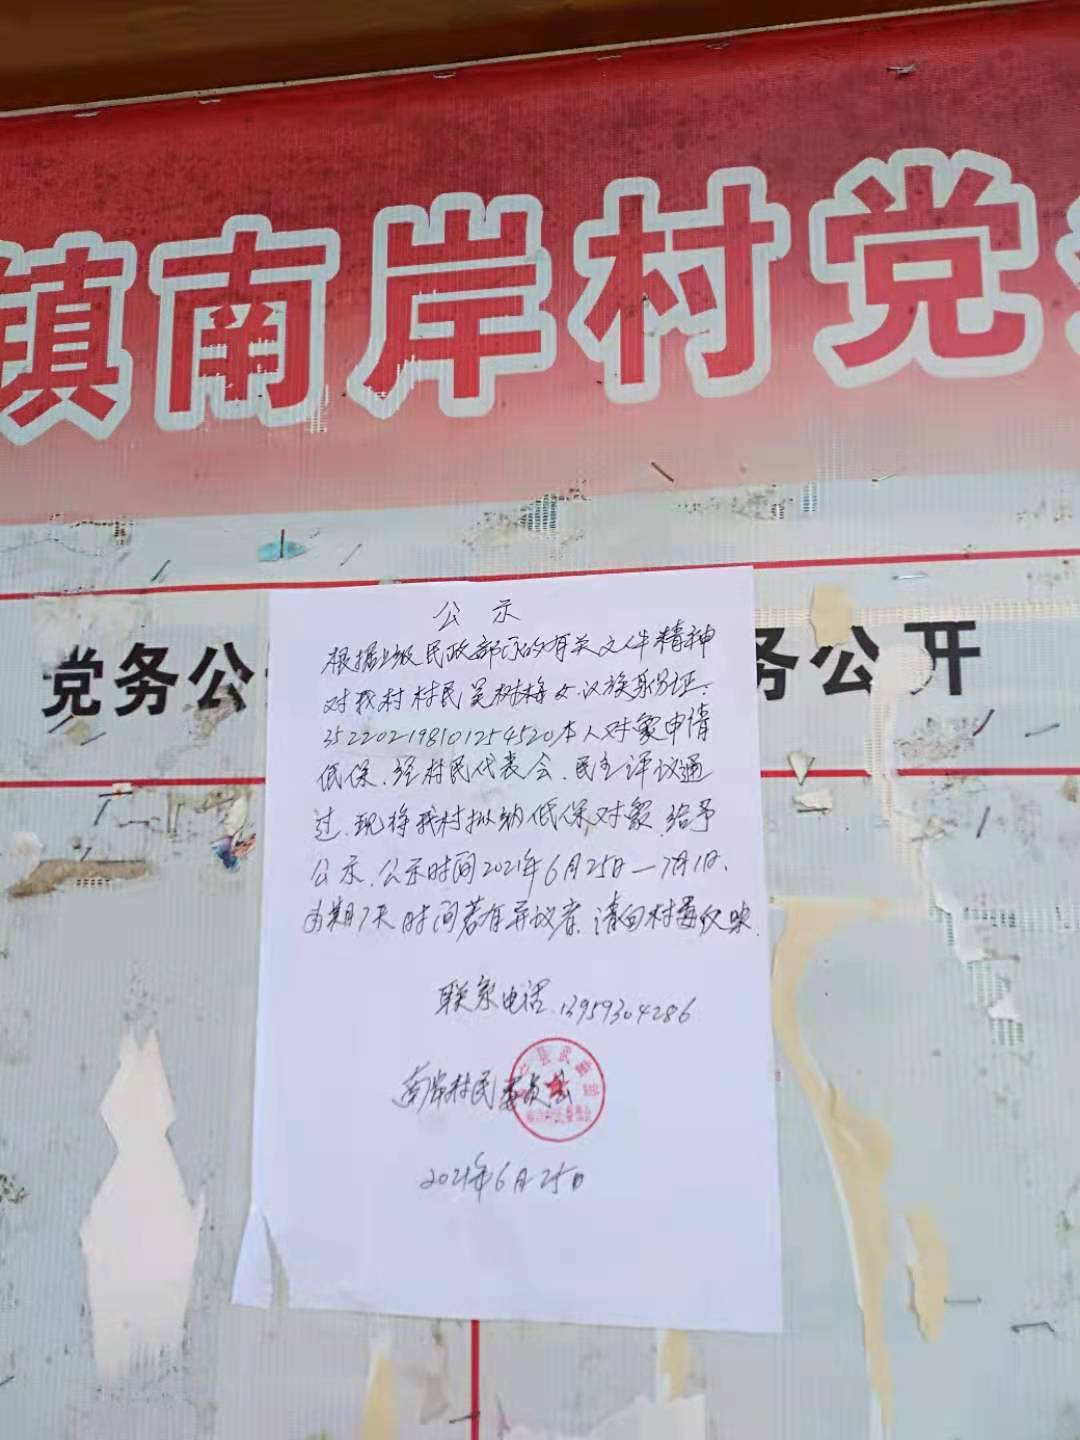 镇南岸村党
党务公
务公开
公示
根据上级民政部门的有关文件精神
对我村村民吴树梅女.汉族身份证:
352202198101254520本人对象申请
低保.经村民代表会.民主评议通
过.现将我村拟纳低保对象.给予
公示.公示时间2021年6月25日—7月1日.
为期7天时间若有异议者.请向村委反映.
联系电话.13959304286
南岸村民委员会
2021年6月25日